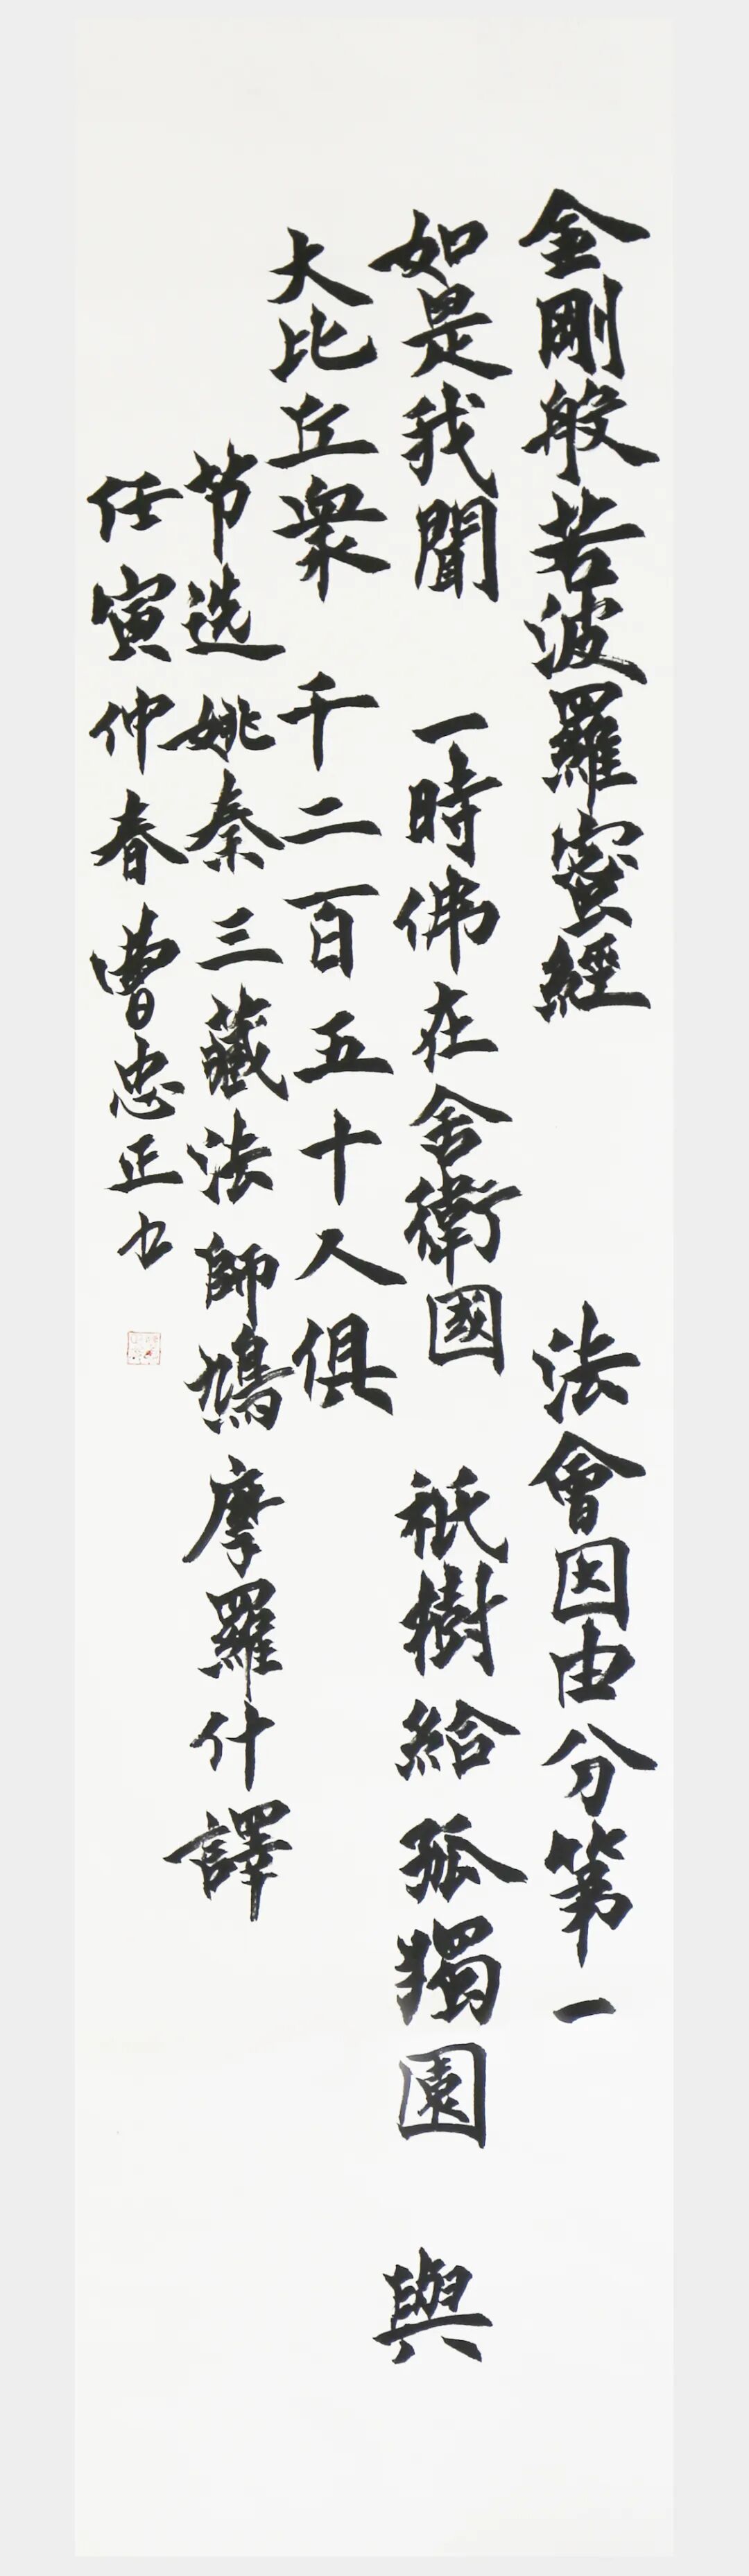 金剛般若波羅蜜經 法會因由分第一
如是我聞 一時佛在舍衛國 祇樹給孤獨園 與
大比丘衆 千二百五十人俱
节选姚秦三藏法師鳩摩羅什譯
任寅仲春曹忠正书